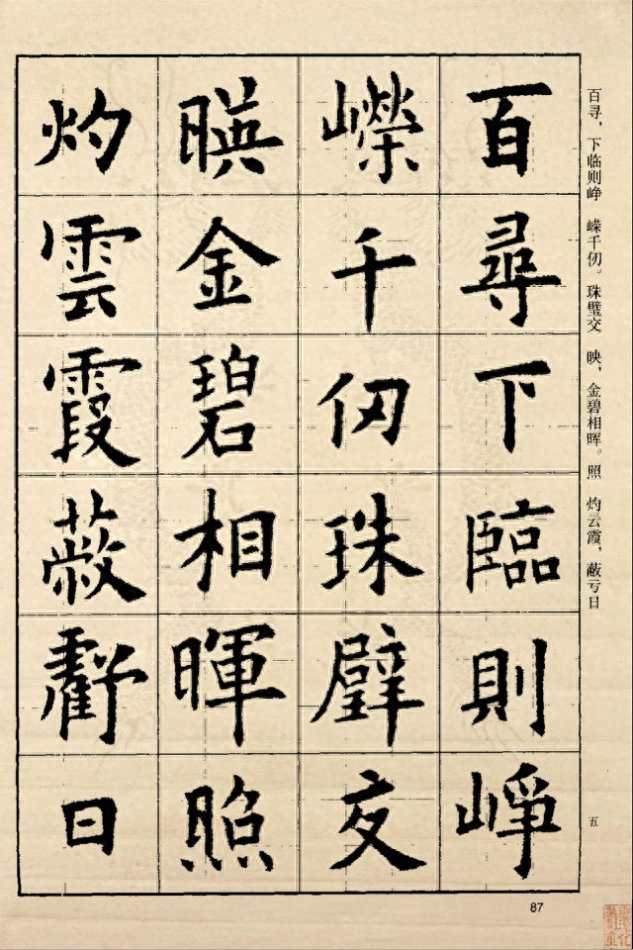 百寻，下临则峥 嵘千仞。珠璧交 映，金碧相晖。照 灼云霞，蔽亏日
百尋下臨則崢
嶸千仞珠璧交
暎金碧相暉照
灼雲霞蔽虧日
五
87